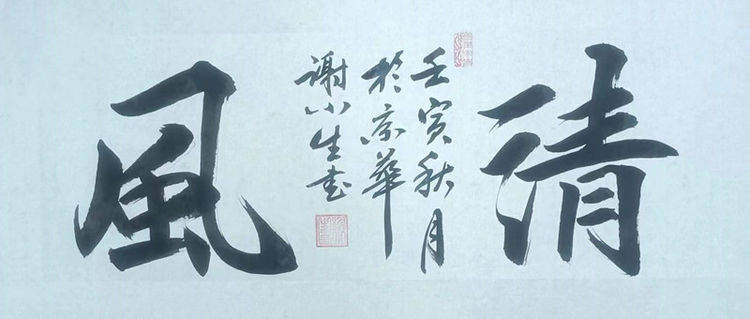 清風
壬寅秋月
於京華
謝小生書